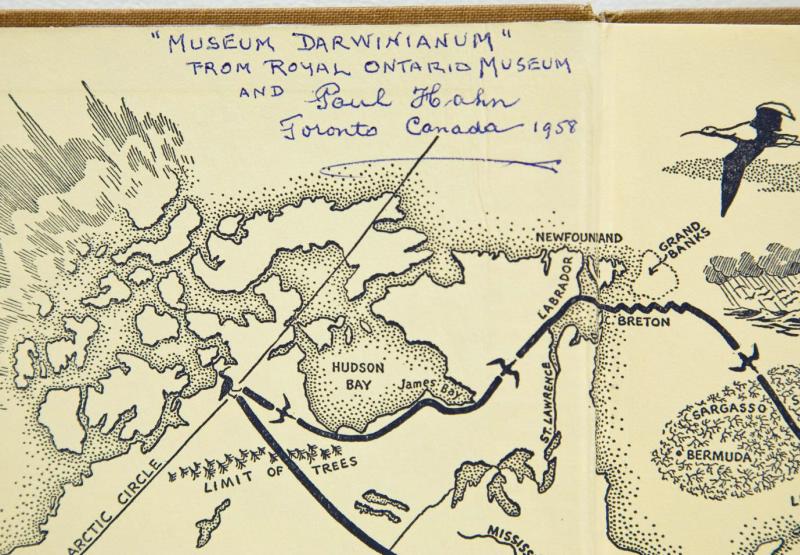 "MUSEUM DARWINIANUM"
FROM ROYAL ONTARIO MUSEUM
AND Paul Hahn
Toronto Canada 1958
NEWFOUNLAND
GRAND
BANKS
LABRADOR
C. BRETON
HUDSON
BAY
James Bay
ST. LAWRENCE
SARGASSO
BERMUDA
LIMIT OF TREES
ARCTIC CIRCLE
MISSISS